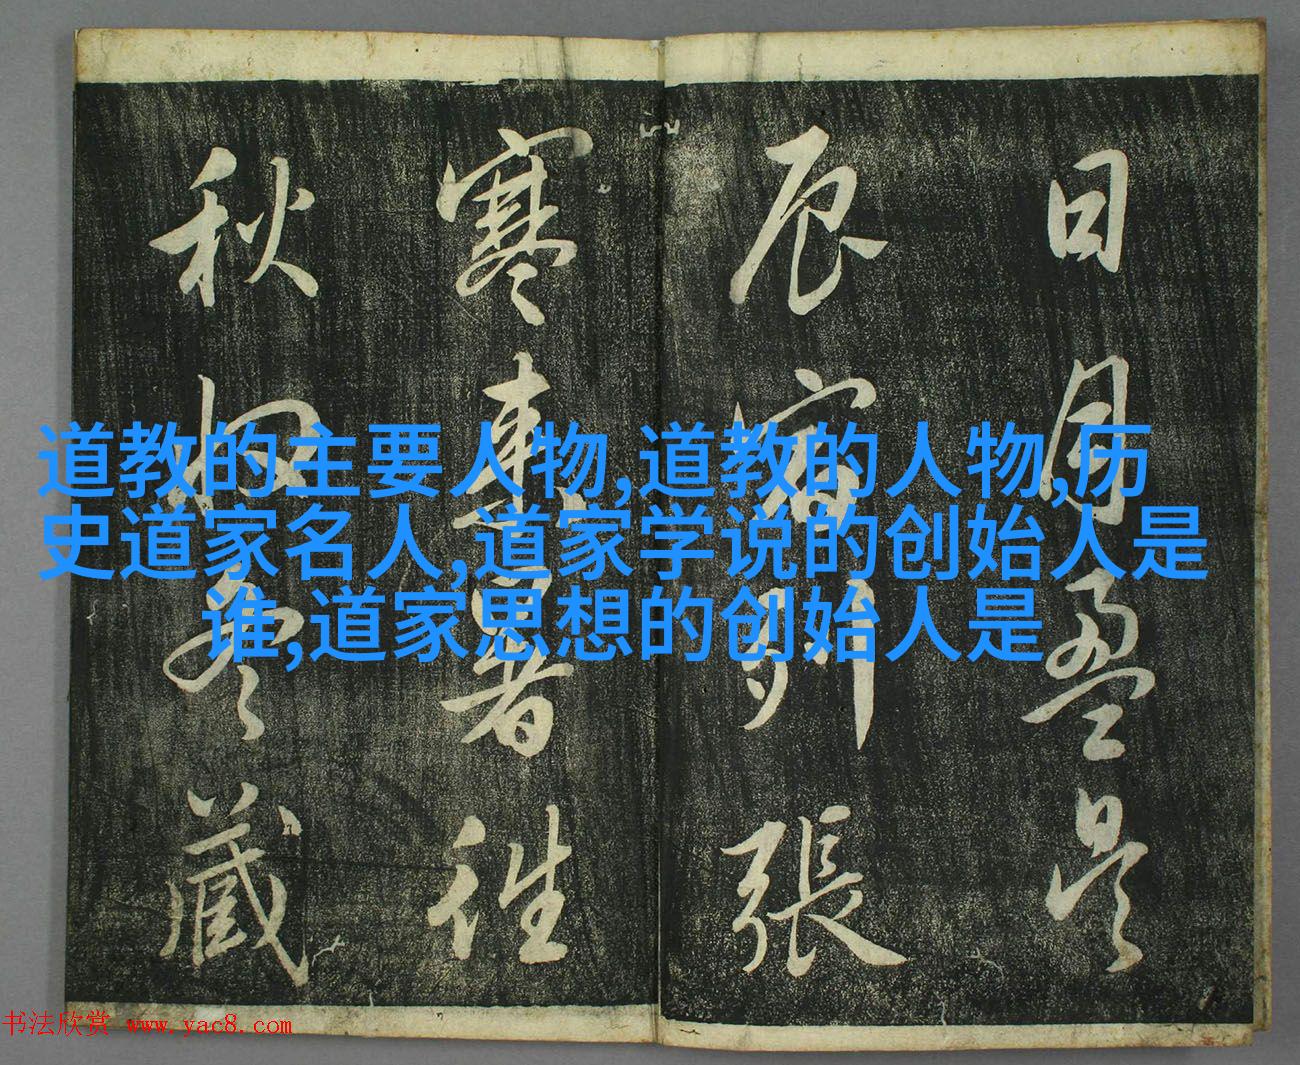 日月盈昃
辰宿列張
寒來暑往
秋收冬藏
道教的主要人物,道教的人物,历
史道家名人,道家学说的创始人是
谁,道家思想的创始人是
书法欣赏 www.yac8.com